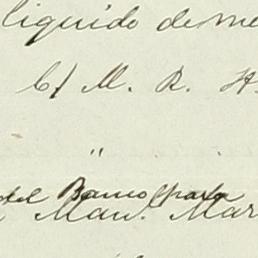 liquido de me
C/ M. R. H
"
del Banco para
Man. Mar